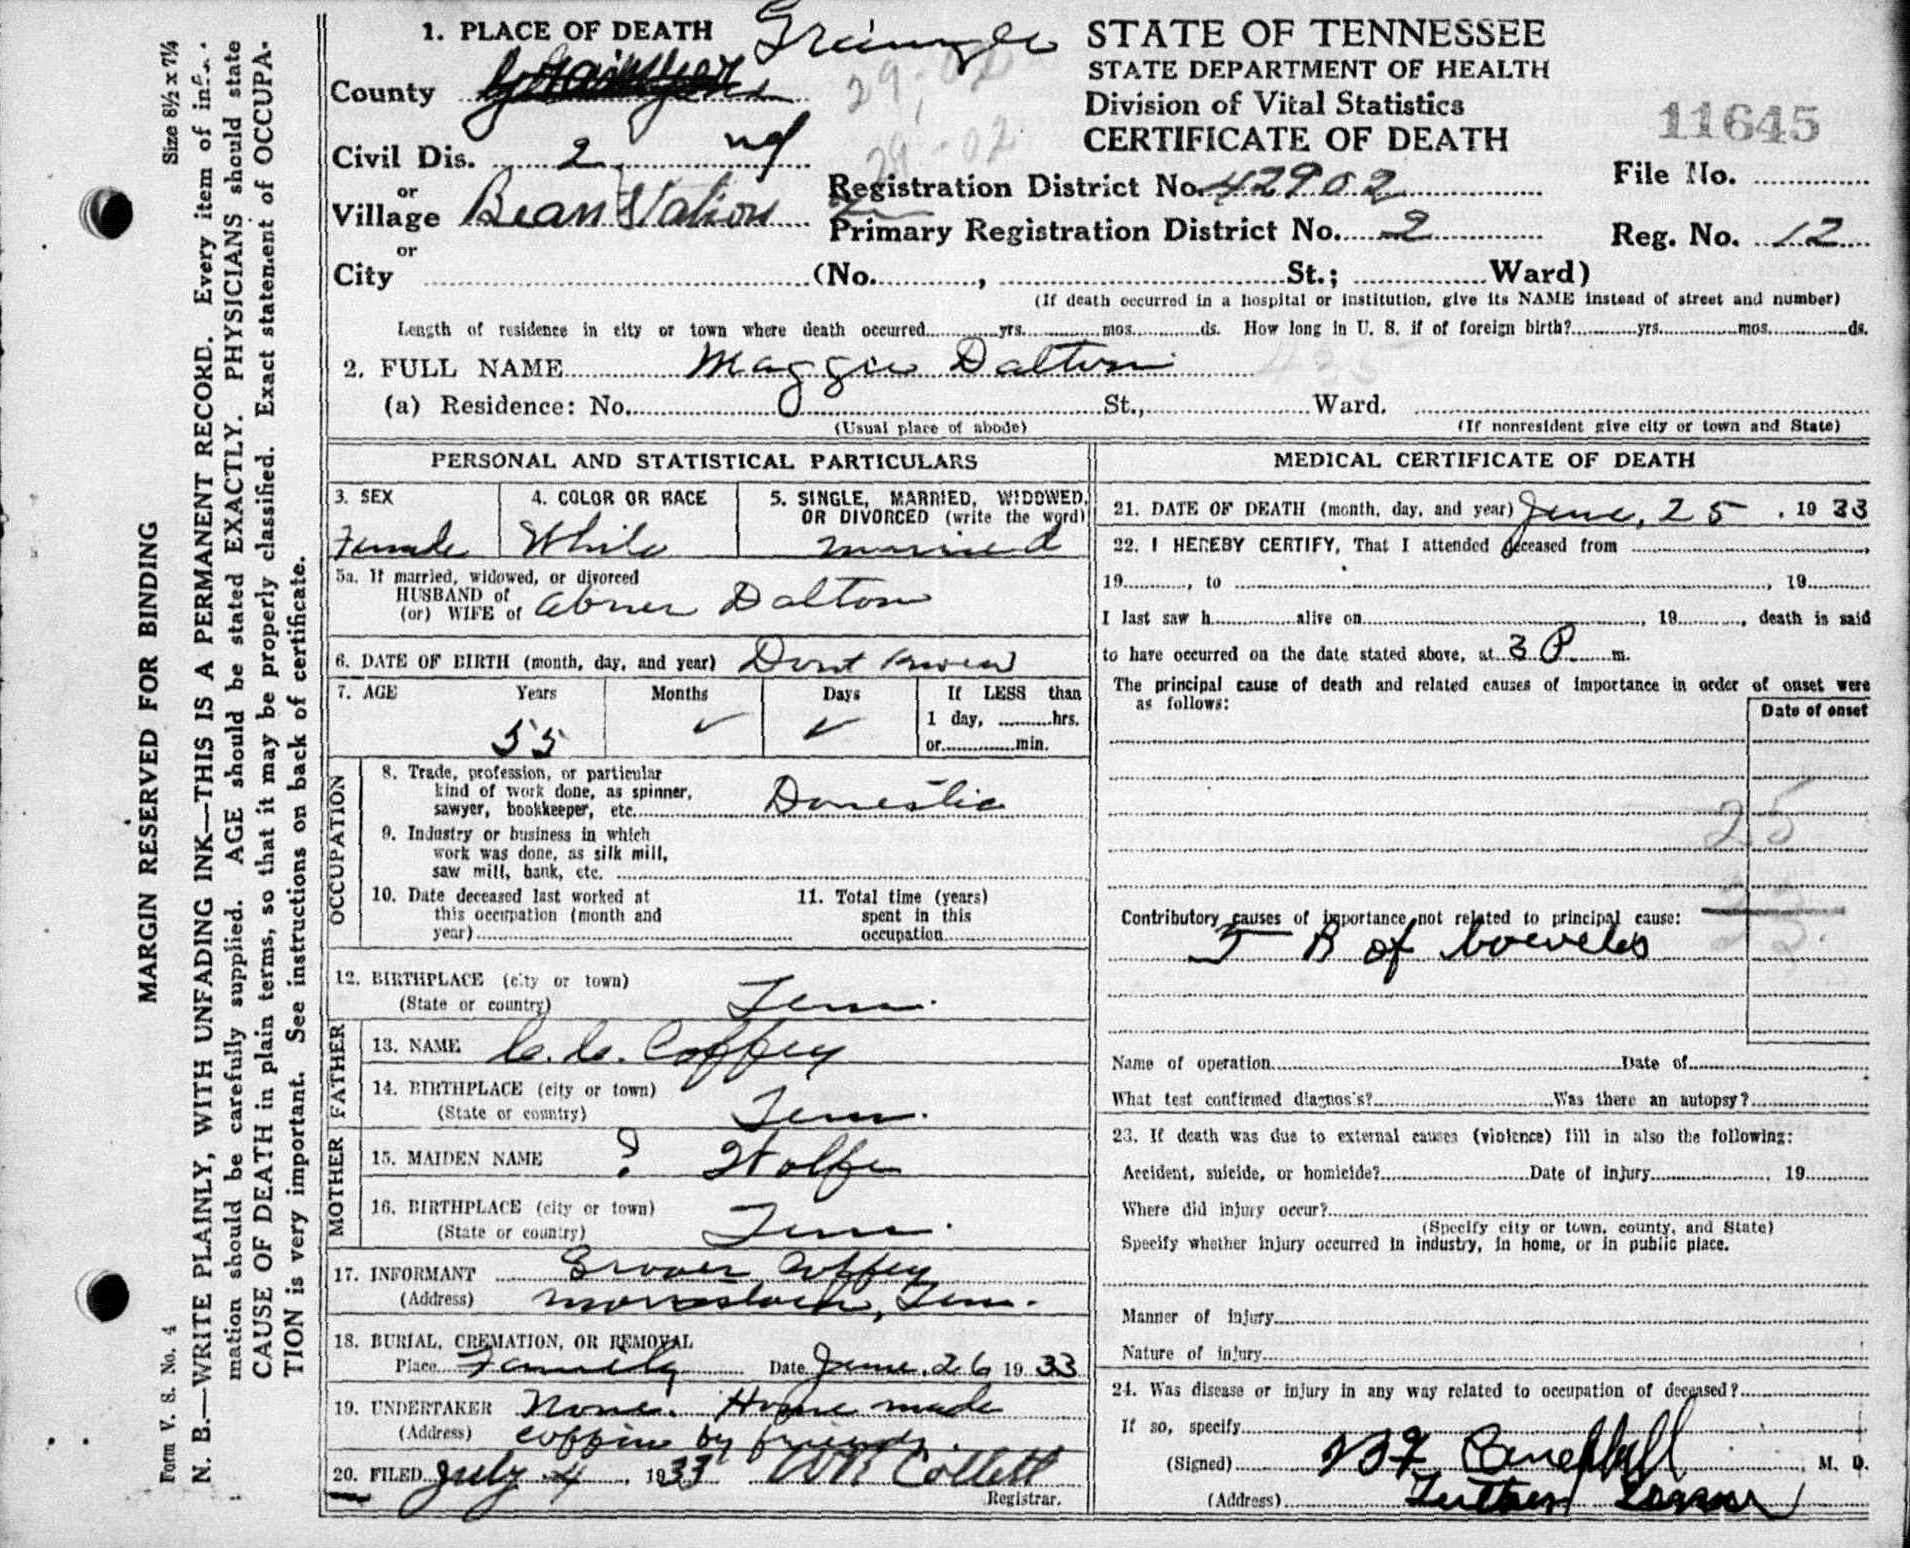 1. PLACE OF DEATH
County Grainger
Civil Dis. 2 nd
or
Village Bean Station
or
City (No. , St.; Ward)
STATE OF TENNESSEE
STATE DEPARTMENT OF HEALTH
Division of Vital Statistics
CERTIFICATE OF DEATH
29-02
29-02
11645
Registration District No. 42902
File No.
Primary Registration District No. 2
Reg. No. 12
(If death occurred in a hospital or institution, give its NAME instead of street and number)
Length of residence in city or town where death occurred yrs. mos. ds. How long in U. S. if of foreign birth? yrs. mos. ds.
2. FULL NAME Maggie Dalton
(a) Residence: No. St., Ward.
(Usual place of abode) (If nonresident give city or town and State)
PERSONAL AND STATISTICAL PARTICULARS
3. SEX
Female
4. COLOR OR RACE
White
5. SINGLE, MARRIED, WIDOWED,
OR DIVORCED (write the word)
married
5a. If married, widowed, or divorced
HUSBAND of
(or) WIFE of Abner Dalton
6. DATE OF BIRTH (month, day, and year) Dont Know
7. AGE Years Months Days If LESS than
1 day, hrs.
or min.
55
OCCUPATION
8. Trade, profession, or particular
kind of work done, as spinner,
sawyer, bookkeeper, etc. Domestic
9. Industry or business in which
work was done, as silk mill,
saw mill, bank, etc.
10. Date deceased last worked at
this occupation (month and
year)
11. Total time (years)
spent in this
occupation
12. BIRTHPLACE (city or town)
(State or country) Tenn.
FATHER
13. NAME C. C. Coffey
14. BIRTHPLACE (city or town)
(State or country) Tenn.
MOTHER
15. MAIDEN NAME ? Wolfe
16. BIRTHPLACE (city or town)
(State or country) Tenn.
17. INFORMANT Grover Coffey
(Address) Morristown, Tenn.
18. BURIAL, CREMATION, OR REMOVAL
Place Family Date June 26 1933
19. UNDERTAKER None. Home made
(Address) coffin by friends.
20. FILED July 4, 1933 WB Collett
Registrar.
MEDICAL CERTIFICATE OF DEATH
21. DATE OF DEATH (month, day, and year) June, 25, 1933
22. I HEREBY CERTIFY, That I attended deceased from
19 , to , 19
I last saw h alive on , 19 , death is said
to have occurred on the date stated above, at 3 P m.
The principal cause of death and related causes of importance in order of onset were
as follows:
Date of onset
25
Contributory causes of importance not related to principal cause:
T B of boweles
Name of operation Date of
What test confirmed diagnosis? Was there an autopsy?
23. If death was due to external causes (violence) fill in also the following:
Accident, suicide, or homicide? Date of injury , 19
Where did injury occur?
(Specify city or town, county, and State)
Specify whether injury occurred in industry, in home, or in public place.
Manner of injury
Nature of injury
24. Was disease or injury in any way related to occupation of deceased?
If so, specify
(Signed) , M. D.
(Address)
Size 8½ x 7¼
MARGIN RESERVED FOR BINDING
Form V. S. No. 4
N. B.—WRITE PLAINLY, WITH UNFADING INK—THIS IS A PERMANENT RECORD. Every item of infor-
mation should be carefully supplied. AGE should be stated EXACTLY. PHYSICIANS should state
CAUSE OF DEATH in plain terms, so that it may be properly classified. Exact statement of OCCUPA-
TION is very important. See instructions on back of certificate.